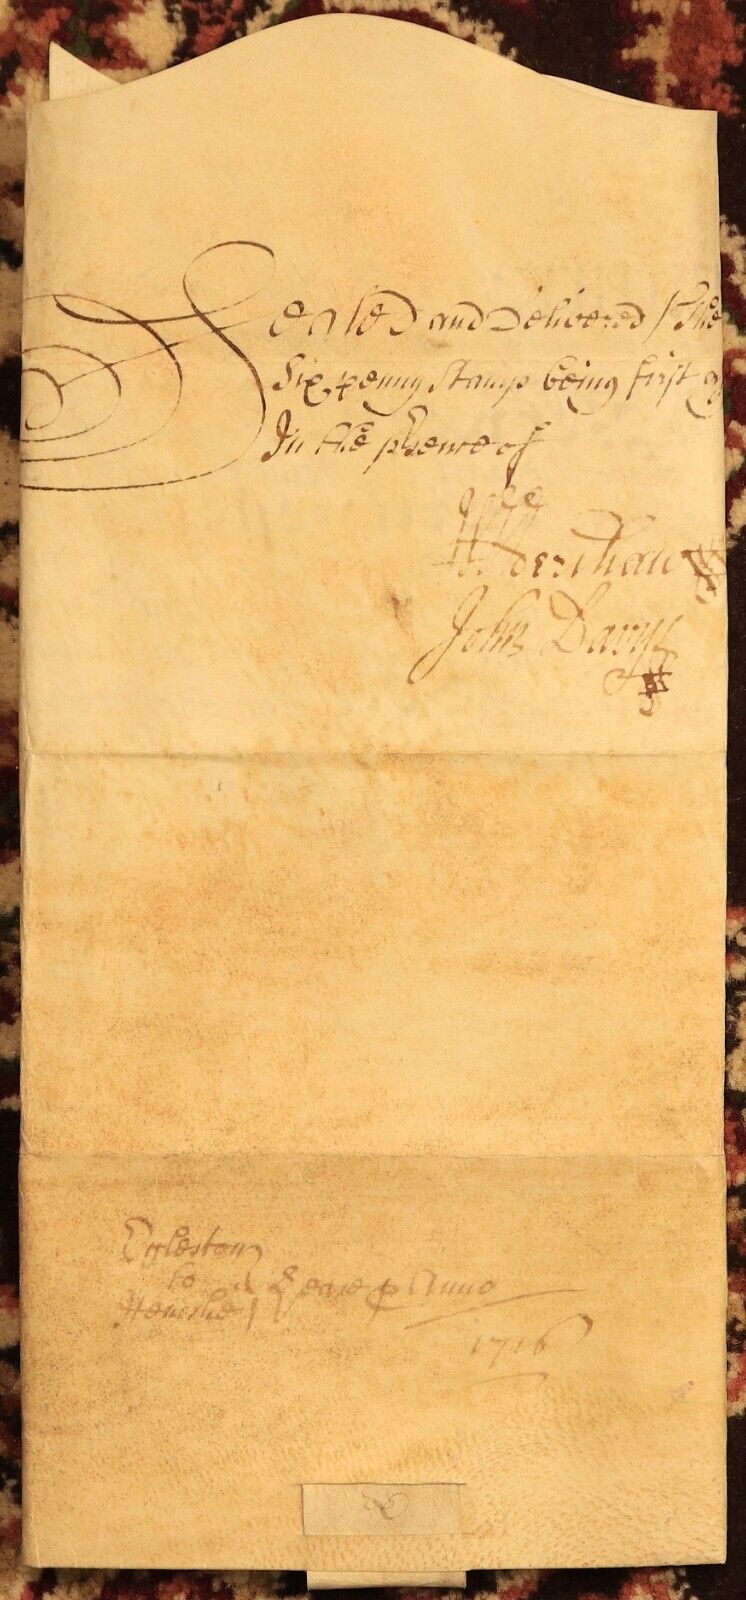 Sealed and Delivered / The
Six penny Stamp being first
In the pĥence of
John Davys
Egleston
to
Lease p Anno
1716